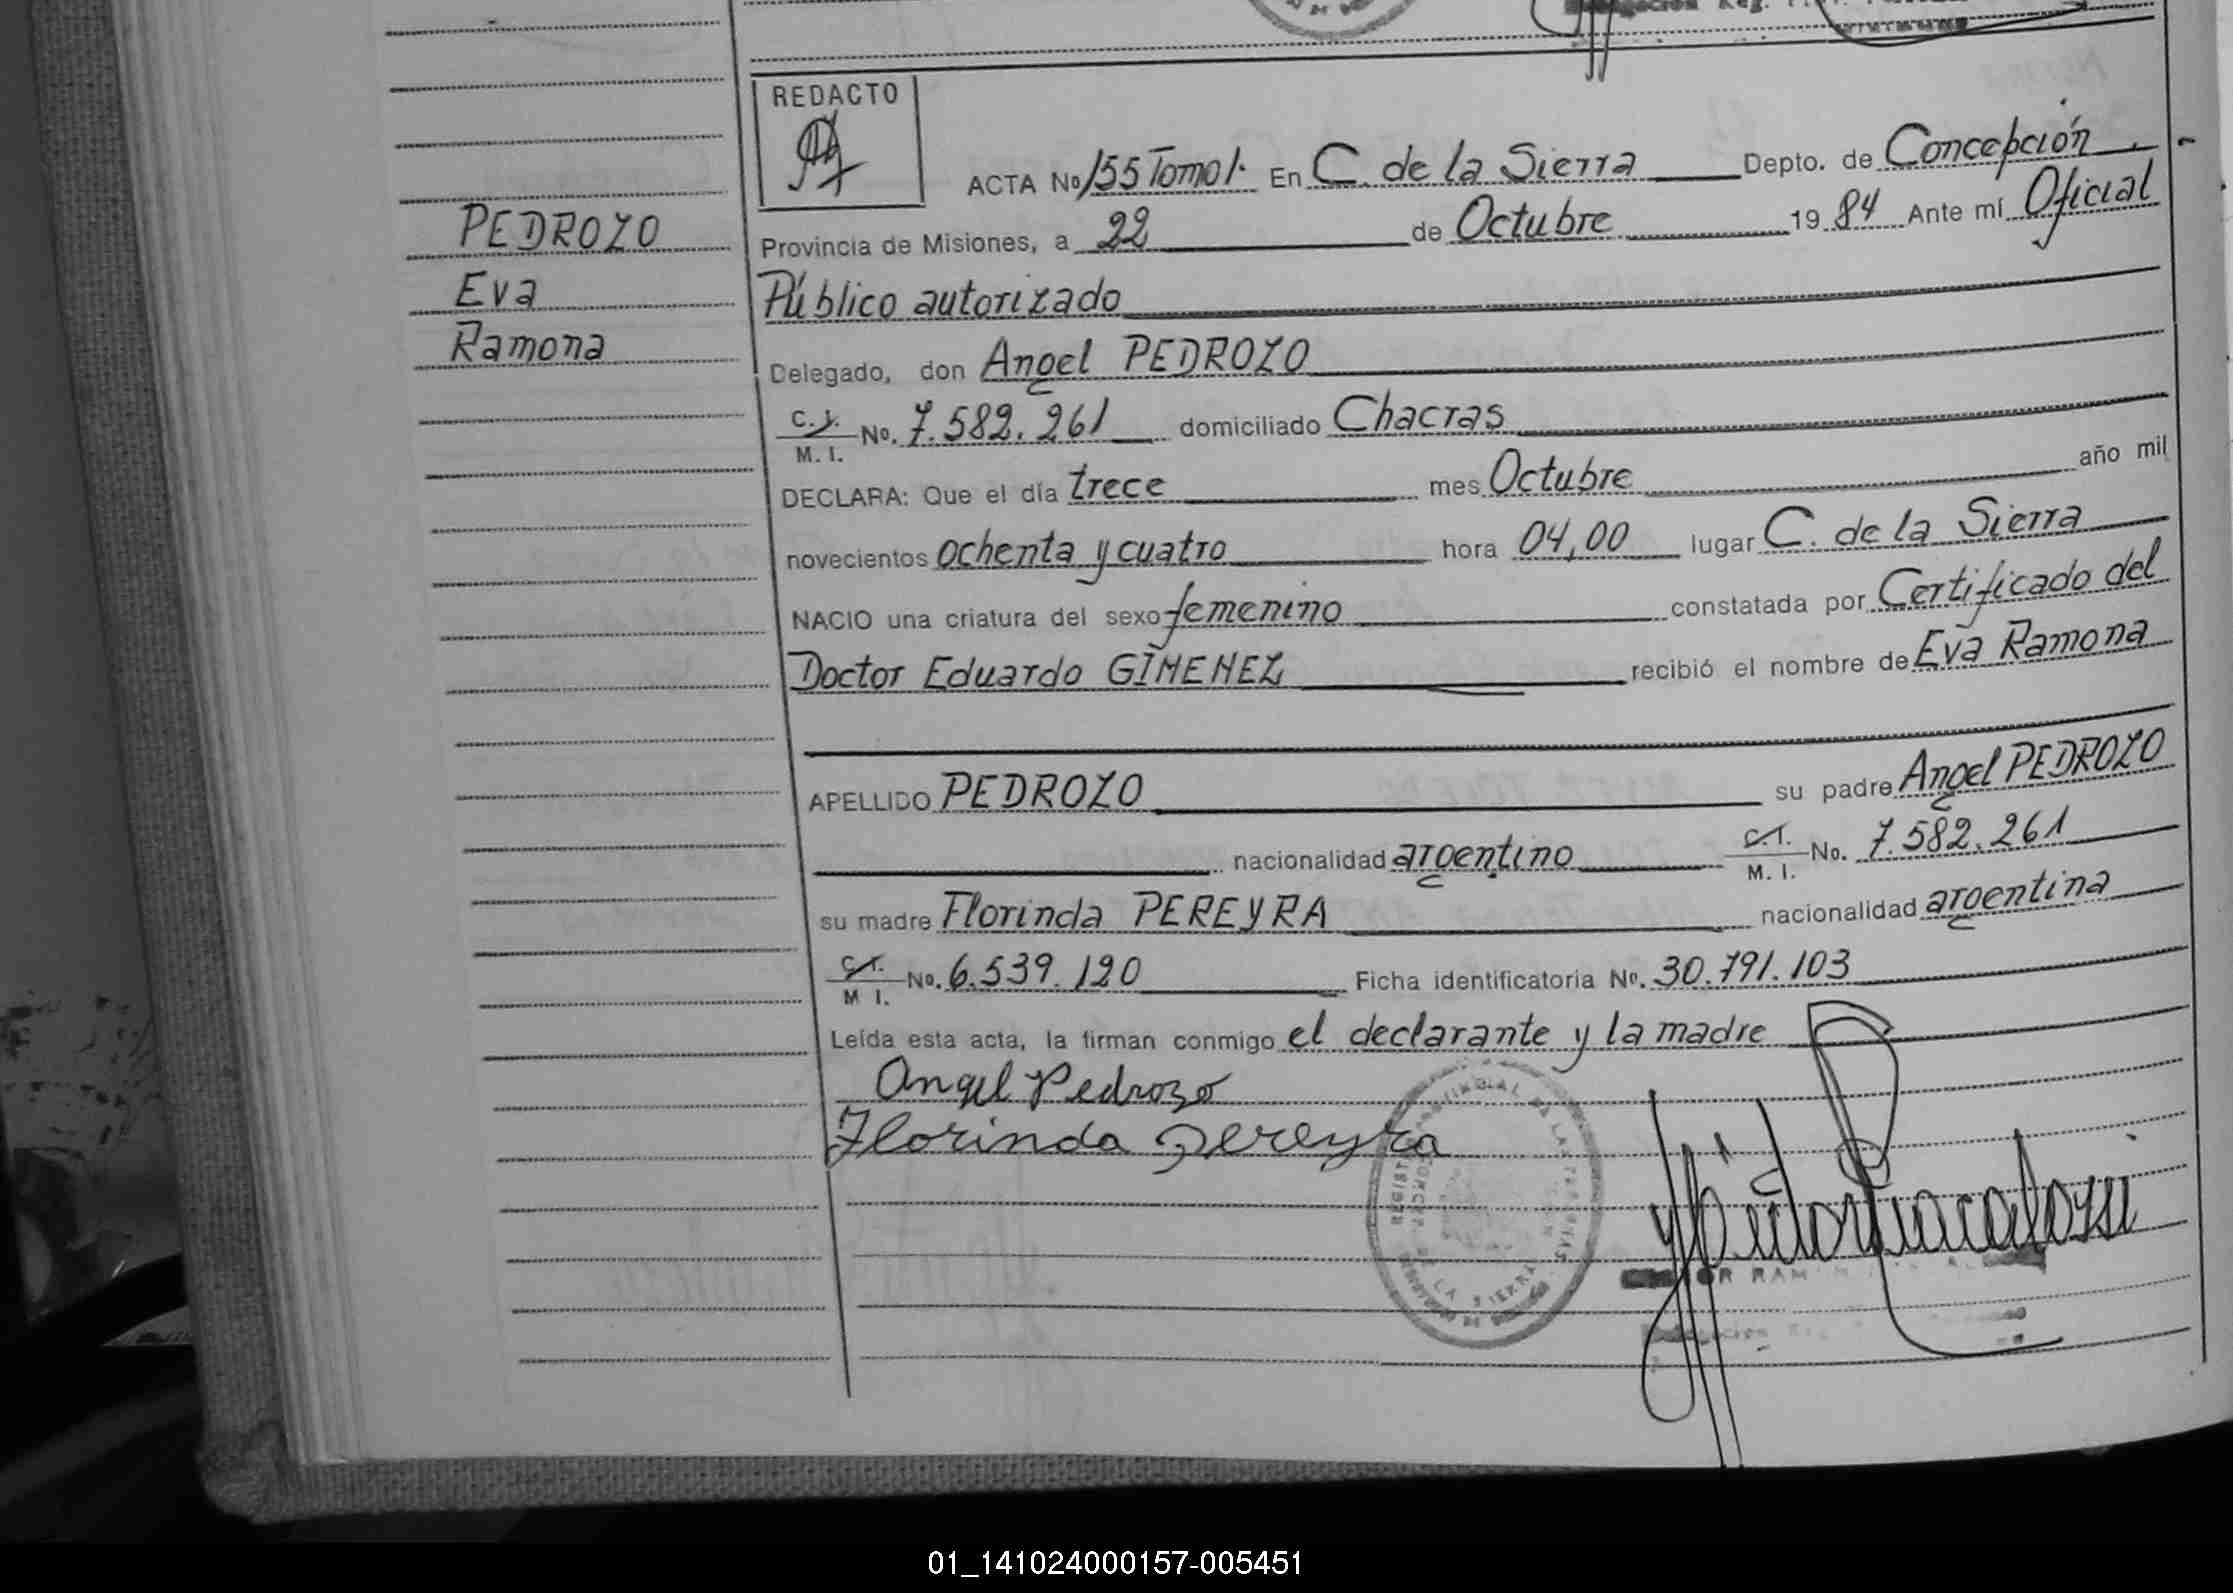 REDACTO
ACTA No 155 Tomo 1. En C. de la Sierra Depto. de Concepción
Provincia de Misiones, a 22 de Octubre 1984 Ante mí Oficial
Público autorizado
Delegado, don Angel PEDROZO
C.I. M. I. No. 7.582.261 domiciliado Chacras
DECLARA: Que el día trece mes Octubre año mil
novecientos ochenta y cuatro hora 04,00 lugar C. de la Sierra
NACIO una criatura del sexo femenino constatada por Certificado del
Doctor Eduardo GIMENEZ recibió el nombre de Eva Ramona
APELLIDO PEDROZO su padre Angel PEDROZO
nacionalidad argentino C.I. M. I. No. 7.582.261
su madre Florinda PEREYRA nacionalidad argentina
C.I. M I. No. 6.539.120 Ficha identificatoria No. 30.791.103
Leída esta acta, la firman conmigo el declarante y la madre
Angel Pedrozo
Florinda Pereyra
PEDROZO
Eva
Ramona
DE LA SIERRA
01_141024000157-005451